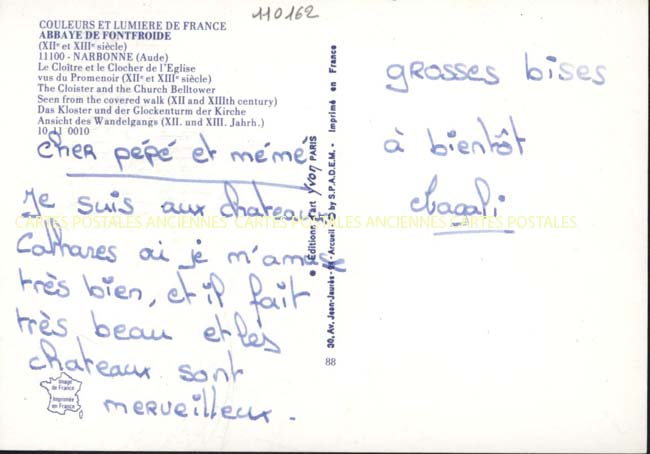 110162
COULEURS ET LUMIERE DE FRANCE
ABBAYE DE FONTFROIDE
(XIIᵉ et XIIIᵉ siècle)
11100 - NARBONNE (Aude)
Le Cloître et le Clocher de l'Eglise
vus du Promenoir (XIIᵉ et XIIIᵉ siècle)
The Cloister and the Church Belltower
Seen from the covered walk (XII and XIIIth century)
Das Kloster und der Glockenturm der Kirche
Ansicht des Wandelgangs (XII. und XIII. Jahrh.)
10 11 0010
cher pépé et mémé
Je suis aux chateaux
Cathares où je m'amuse
très bien, et il fait
très beau et les
chateaux sont
merveilleux.
Image
de France
Imprimée
en France
● Editions d'art Yvon PARIS
30, Av. Jean-Jaurès - Arcueil - by S.P.A.D.E.M. - Imprimé en France
88
grosses bises
à bientôt
CARTES POSTALES ANCIENNES CARTES POSTALES ANCIENNES CARTES POSTALES